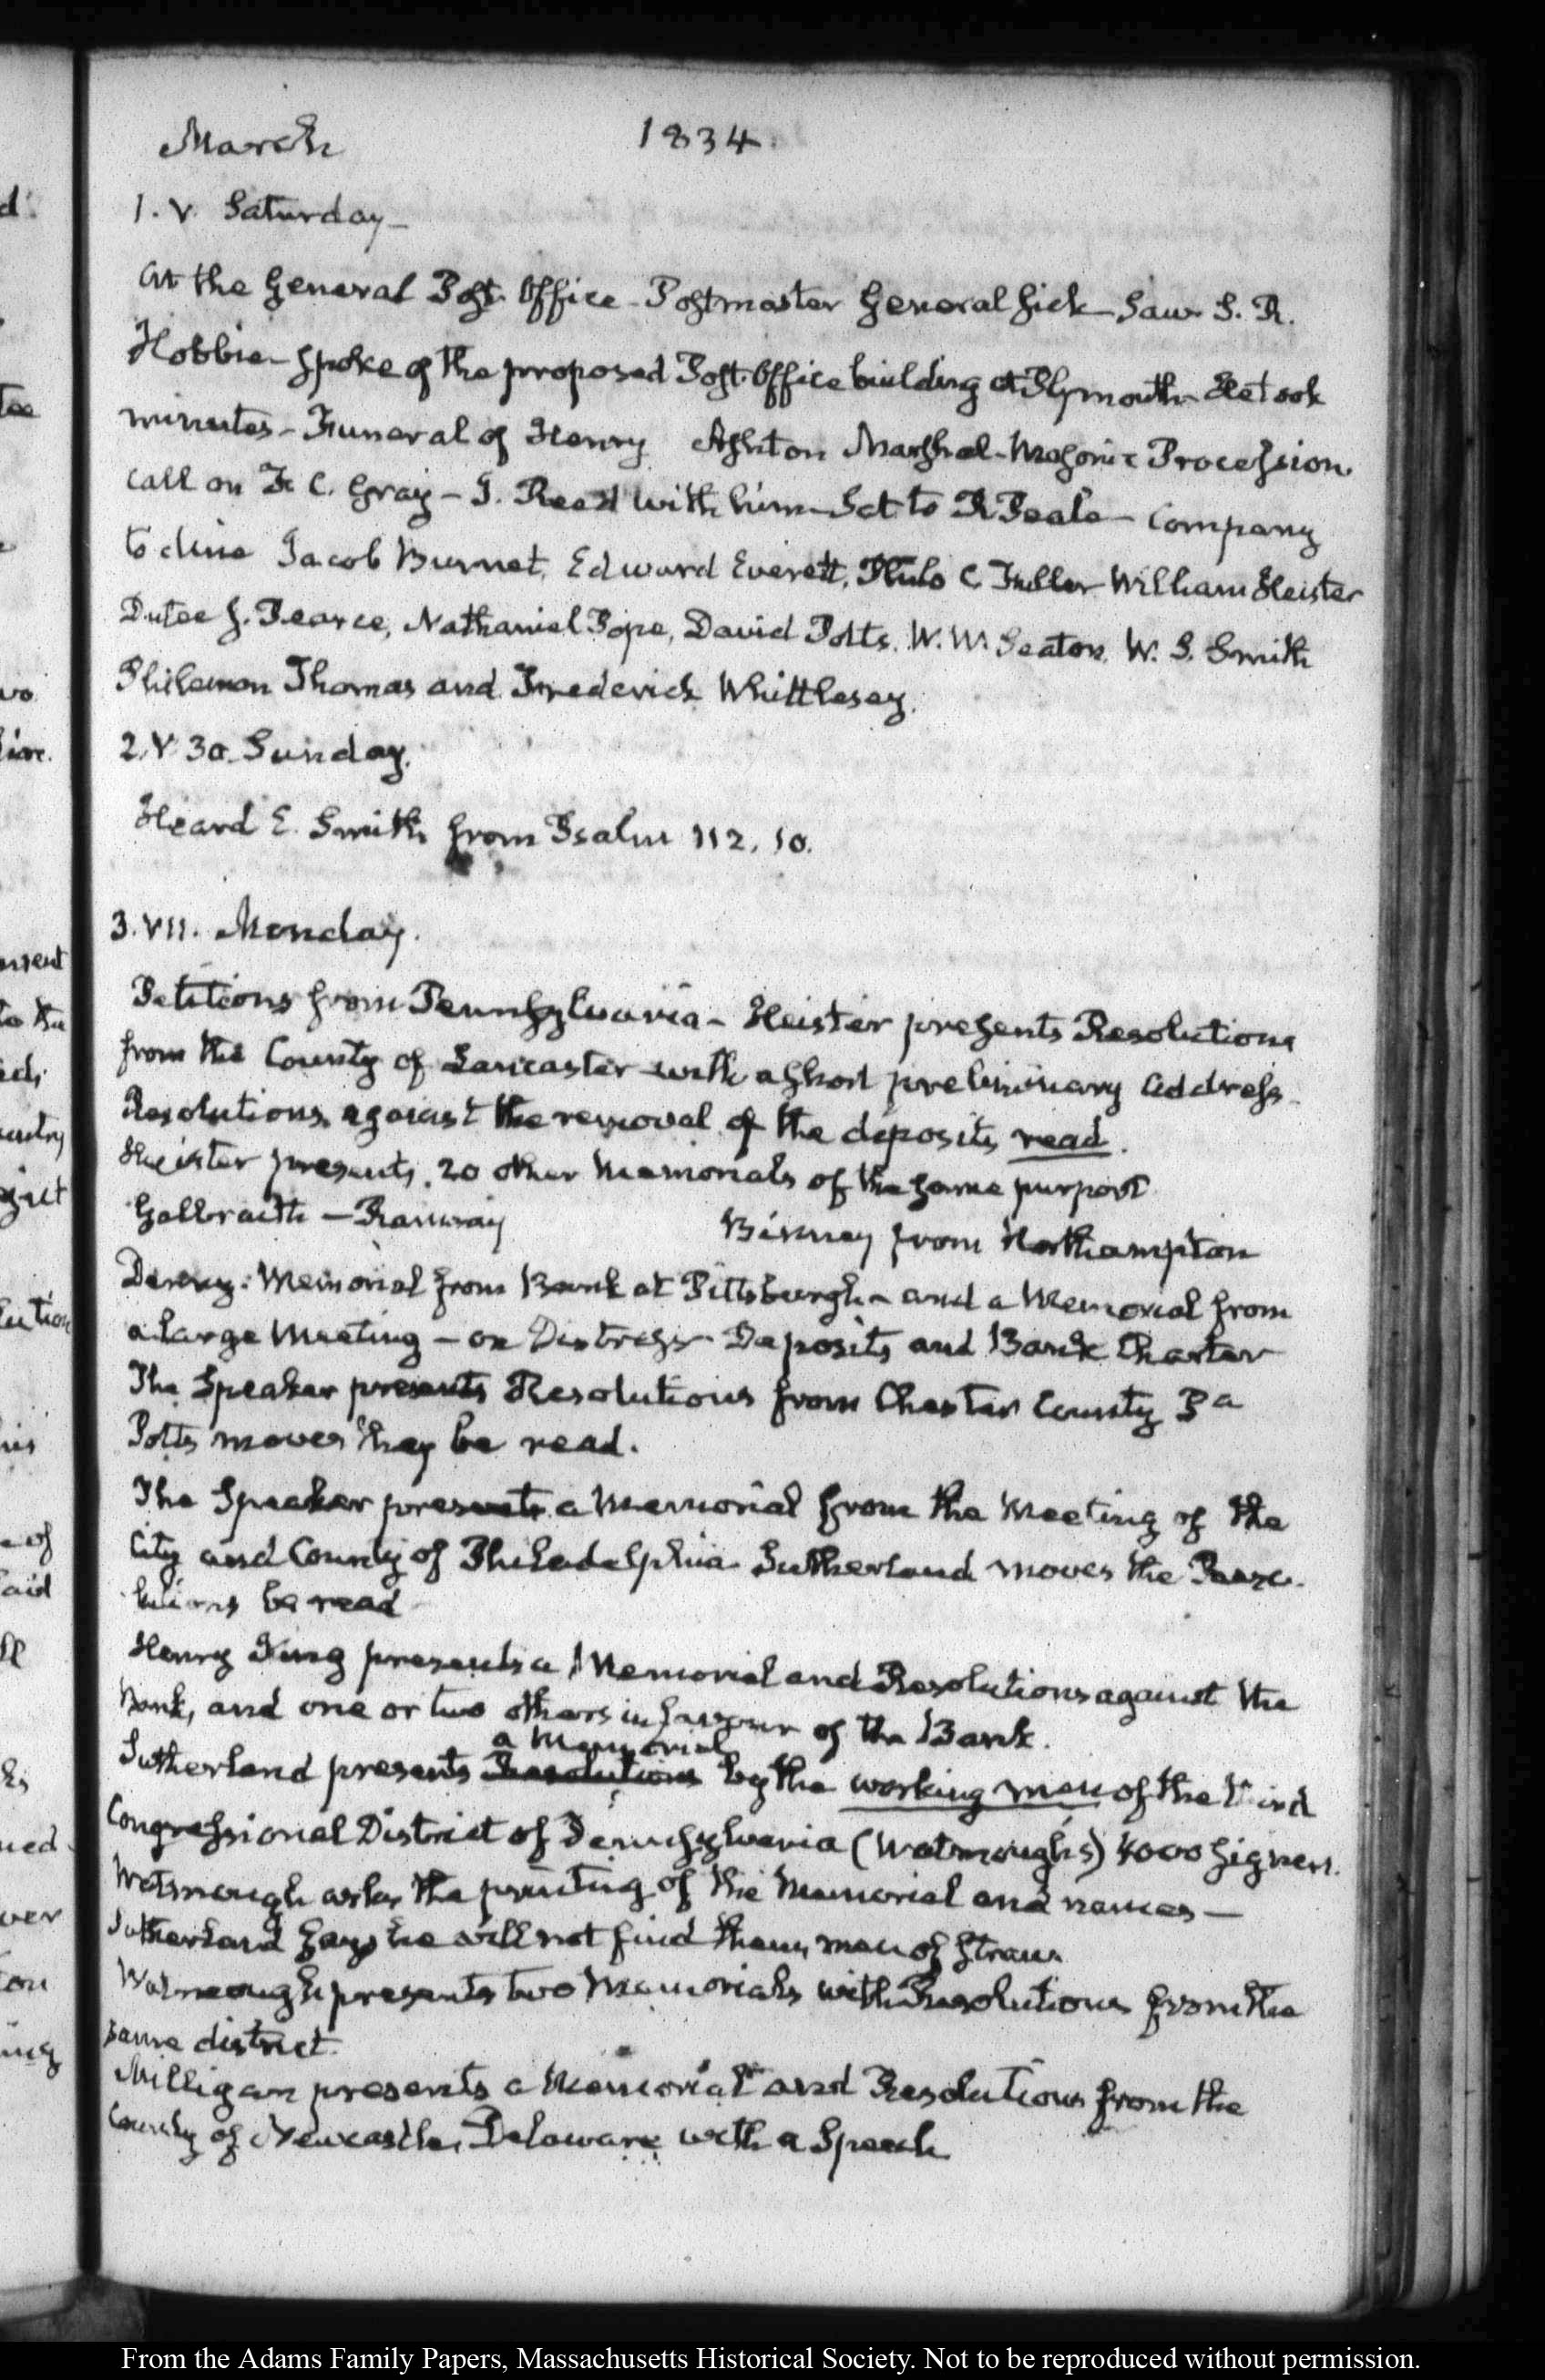 March 1834.
1. V. Saturday—
At the General Post Office - Postmaster General sick - Saw S. R.
Hobbie - spoke of the proposed Post Office building at Plymouth - He took
minutes - Funeral of Henry Ashton Marshal - Masonic Procession
call on F. C. Gray - J. Reed with him - Sat to R Peale - Company
to dine Jacob Burnet, Edward Everett, Philo C Fuller William Heister
Dutee J. Pearce, Nathaniel Pope, David Potts, W. W. Seaton, W. S. Smith
Philemon Thomas and Frederick Whittlesey.
2. V. 30. Sunday.
Heard E. Smith from Psalm 112. 10.
3. VII. Monday.
Petitions from Pennsylvania - Heister presents Resolutions
from the County of Lancaster with a short preliminary address.
Resolutions against the removal of the deposits read.
Heister presents. 20 other Memorials of the same purport
Galbraith — Ramsay Binney from Northampton
Denny. Memorial from Bank at Pittsburgh - and a Memorial from
a large Meeting - on Distress - Deposits and Bank Charter
The Speaker presents Resolutions from Chester County Pa
Potts moves they be read.
The Speaker presents a Memorial from the Meeting of the
City and County of Philadelphia Sutherland moves the Reso-
lutions be read
Henry King presents a Memorial and Resolutions against the
Bank, and one or two others in favour of the Bank.
a Memorial
Sutherland presents Resolutions by the working men of the Third
Congressional District of Pennsylvania (Watmough's) 4000 signers.
Watmough asks the printing of the Memorial and names —
Sutherland says he will not find them men of straw
Watmough presents two Memorials with Resolutions from the
same district.
Milligan presents a Memorial and Resolutions from the
County of Newcastle, Delaware with a Speech
From the Adams Family Papers, Massachusetts Historical Society. Not to be reproduced without permission.